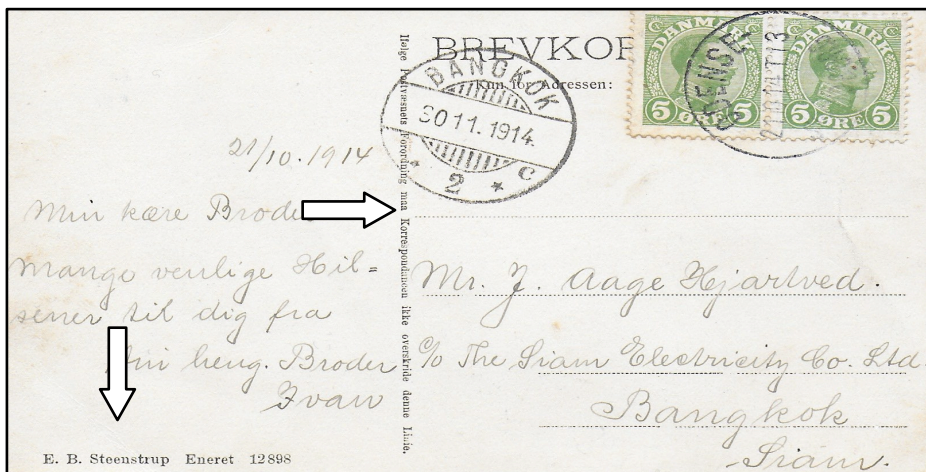 BREVKOR
Kun for Adressen:
DANMARK
5 ØRE 5
DANMARK
5 ØRE 5
ODENSE
BANGKOK
30 11. 1914.
* 2 * C
Ifølge Postvæsnets Forordning maa Korrespondancen ikke overskride denne Linie.
21/10. 1914
Min kære Broder
Mange venlige Hil=
sener til dig fra
Din heng. Broder
Ivan
Mr. J. Aage Hjartved.
c/o The Siam Electricity Co. Ltd.
Bangkok
Siam.
E. B. Steenstrup Eneret 12898